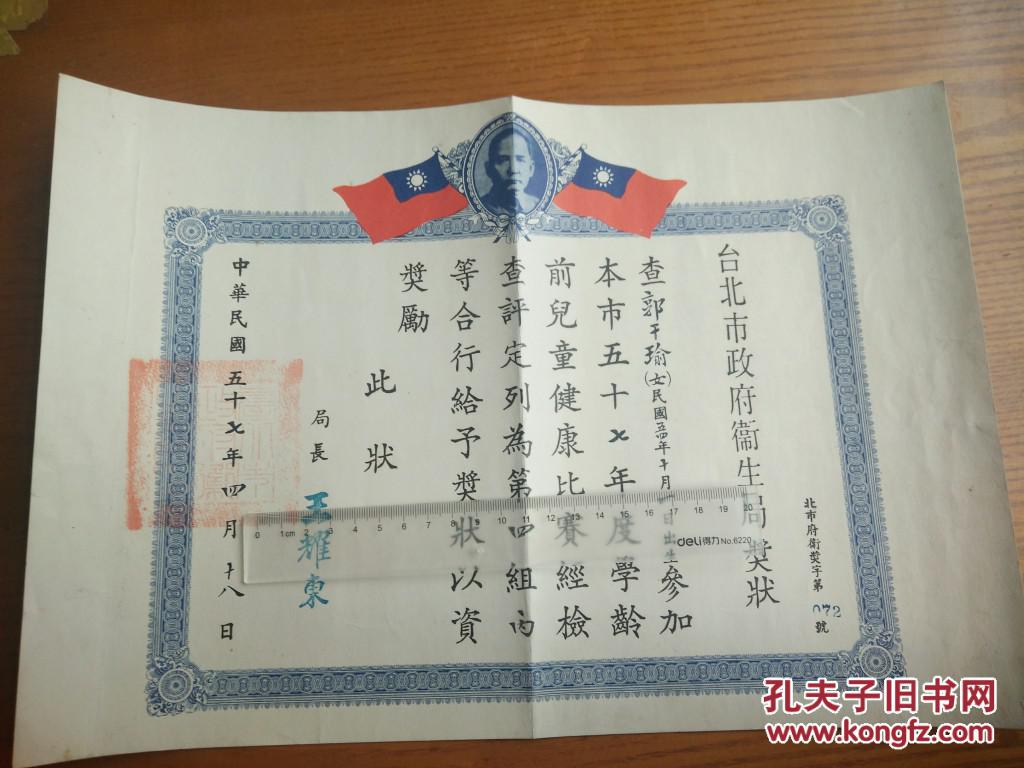 台北市政府衞生局獎狀
北市府衛獎字第072號
查郭干瑜(女)民國年十月日出生參加
本市五十七年度學齡
前兒童健康比賽經檢
查評定列為第四組內
等合行給予獎狀以資
獎勵
此狀
局長 王耀東
中華民國五十七年四月十八日
0 1cm 2 3 4 5 6 7 8 9 10 11 12 13 14 15 16 17 18 19 20
deli得力 No.6220
孔夫子旧书网
www.kongfz.com